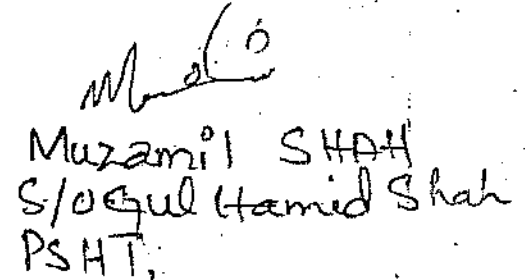 Muzamil SHAH
S/O Gul Hamid Shah
PSHT,